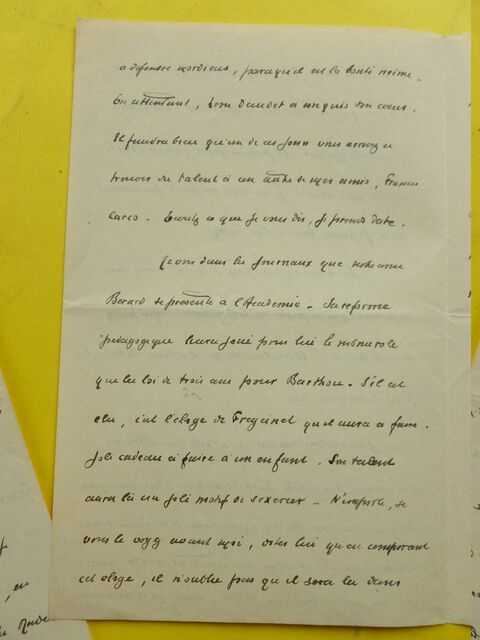 a défendre mordicus, parce qu'il est la bonté même.
En attendant, Léon Daudet a conquis son cœur.
Il faudra bien qu'un de ces jours vous arriviez a
trouver du talent à un autre de mes amis, Francis
Carco. Ecoutez ce que je vous dis, je prends date.
Je vois dans les journaux que notre ami
Berard se présente à l'Académie. Sa reforme
pédagogique aura joué pour lui le même role
que la loi de trois ans pour Barthou. S'il est
elu, c'est l'eloge de Freycinet qu'il aura a faire.
Joli cadeau à faire à un enfant. Son talent
aura là un joli motif de s'exercer. N'importe, si
vous le voyez avant moi, dites lui qu'en composant
cet eloge, il n'oublie pas qu'il sera lu dans
en